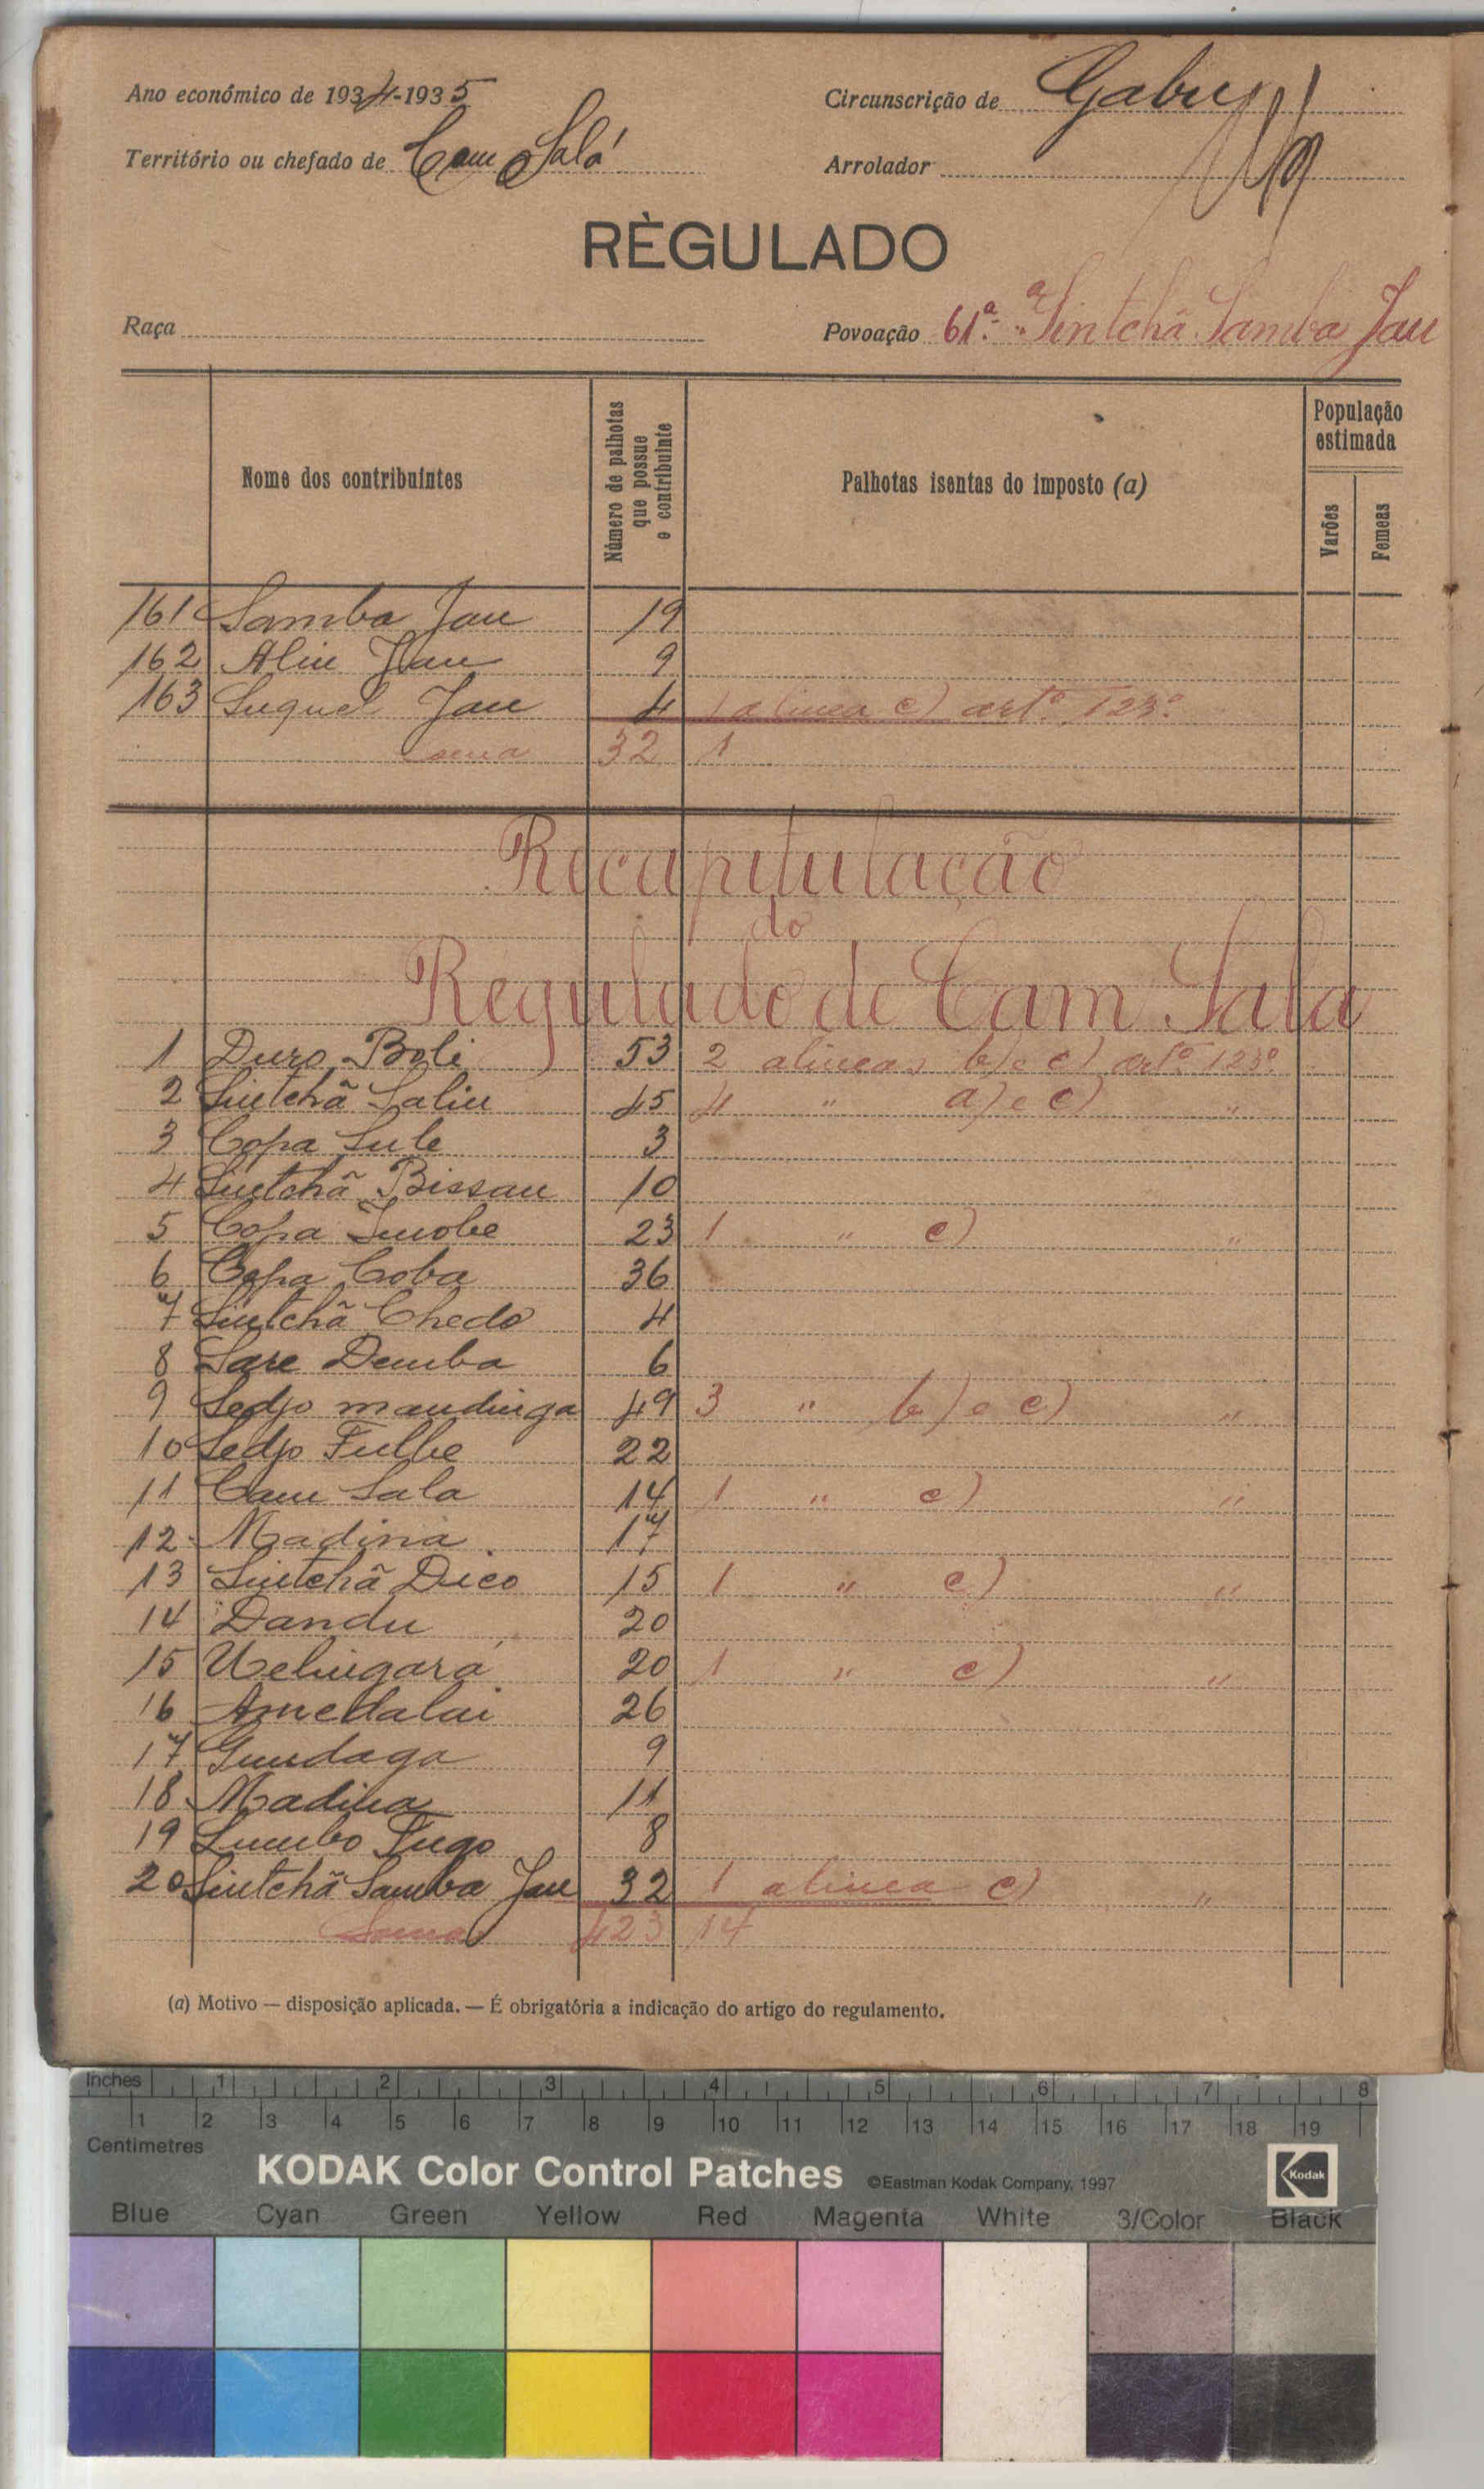 Ano económico de 1934-1935 Circunscrição de Gabu
Território ou chefado de Cam Salá Arrolador
RÈGULADO
Raça Povoação 61ª "Sintchã Samba Jau
Nome dos contribuintes
Número de palhotas que possue o contribuinte
Palhotas isentas do imposto (a)
População estimada
Varões
Femeas
161 Samba Jau 19
162 Aliu Jau 9
163 Suquel Jau 4 1 alinea c) artº 123º
soma 32 1
Recapitulação
do
Regulado de Cam Sala
1 Duro Boli 53 2 alineas b) e c) artº 123º
2 Sintchã Saliu 45 4 " a) e c) "
3 Copa Sule 3
4 Sintchã Bissau 10
5 Copa 23 1 " c) "
6 Copa Coba 36
7 Sintchã Chedo 4
8 Sare Demba 6
9 Sedjo mandinga 49 3 " b) e c) "
10 Sedjo Fulbe 22
11 Cam Sala 14 1 " c) "
12 Madina 17
13 Sintchã Dico 15 1 " c) "
14 Dandu 20
15 Uelingará 20 1 " c) "
16 Amedalai 26
17 Gundaga 9
18 Madina 11
19 Lumbo 8
20 Sintchã Samba Jau 32 1 alinea c) "
Soma 423 14
(a) Motivo — disposição aplicada. — É obrigatória a indicação do artigo do regulamento.
Inches 1 2 3 4 5 6 7 8
1 2 3 4 5 6 7 8 9 10 11 12 13 14 15 16 17 18 19
Centimetres
KODAK Color Control Patches ©Eastman Kodak Company, 1997 Kodak
Blue Cyan Green Yellow Red Magenta White 3/Color Black